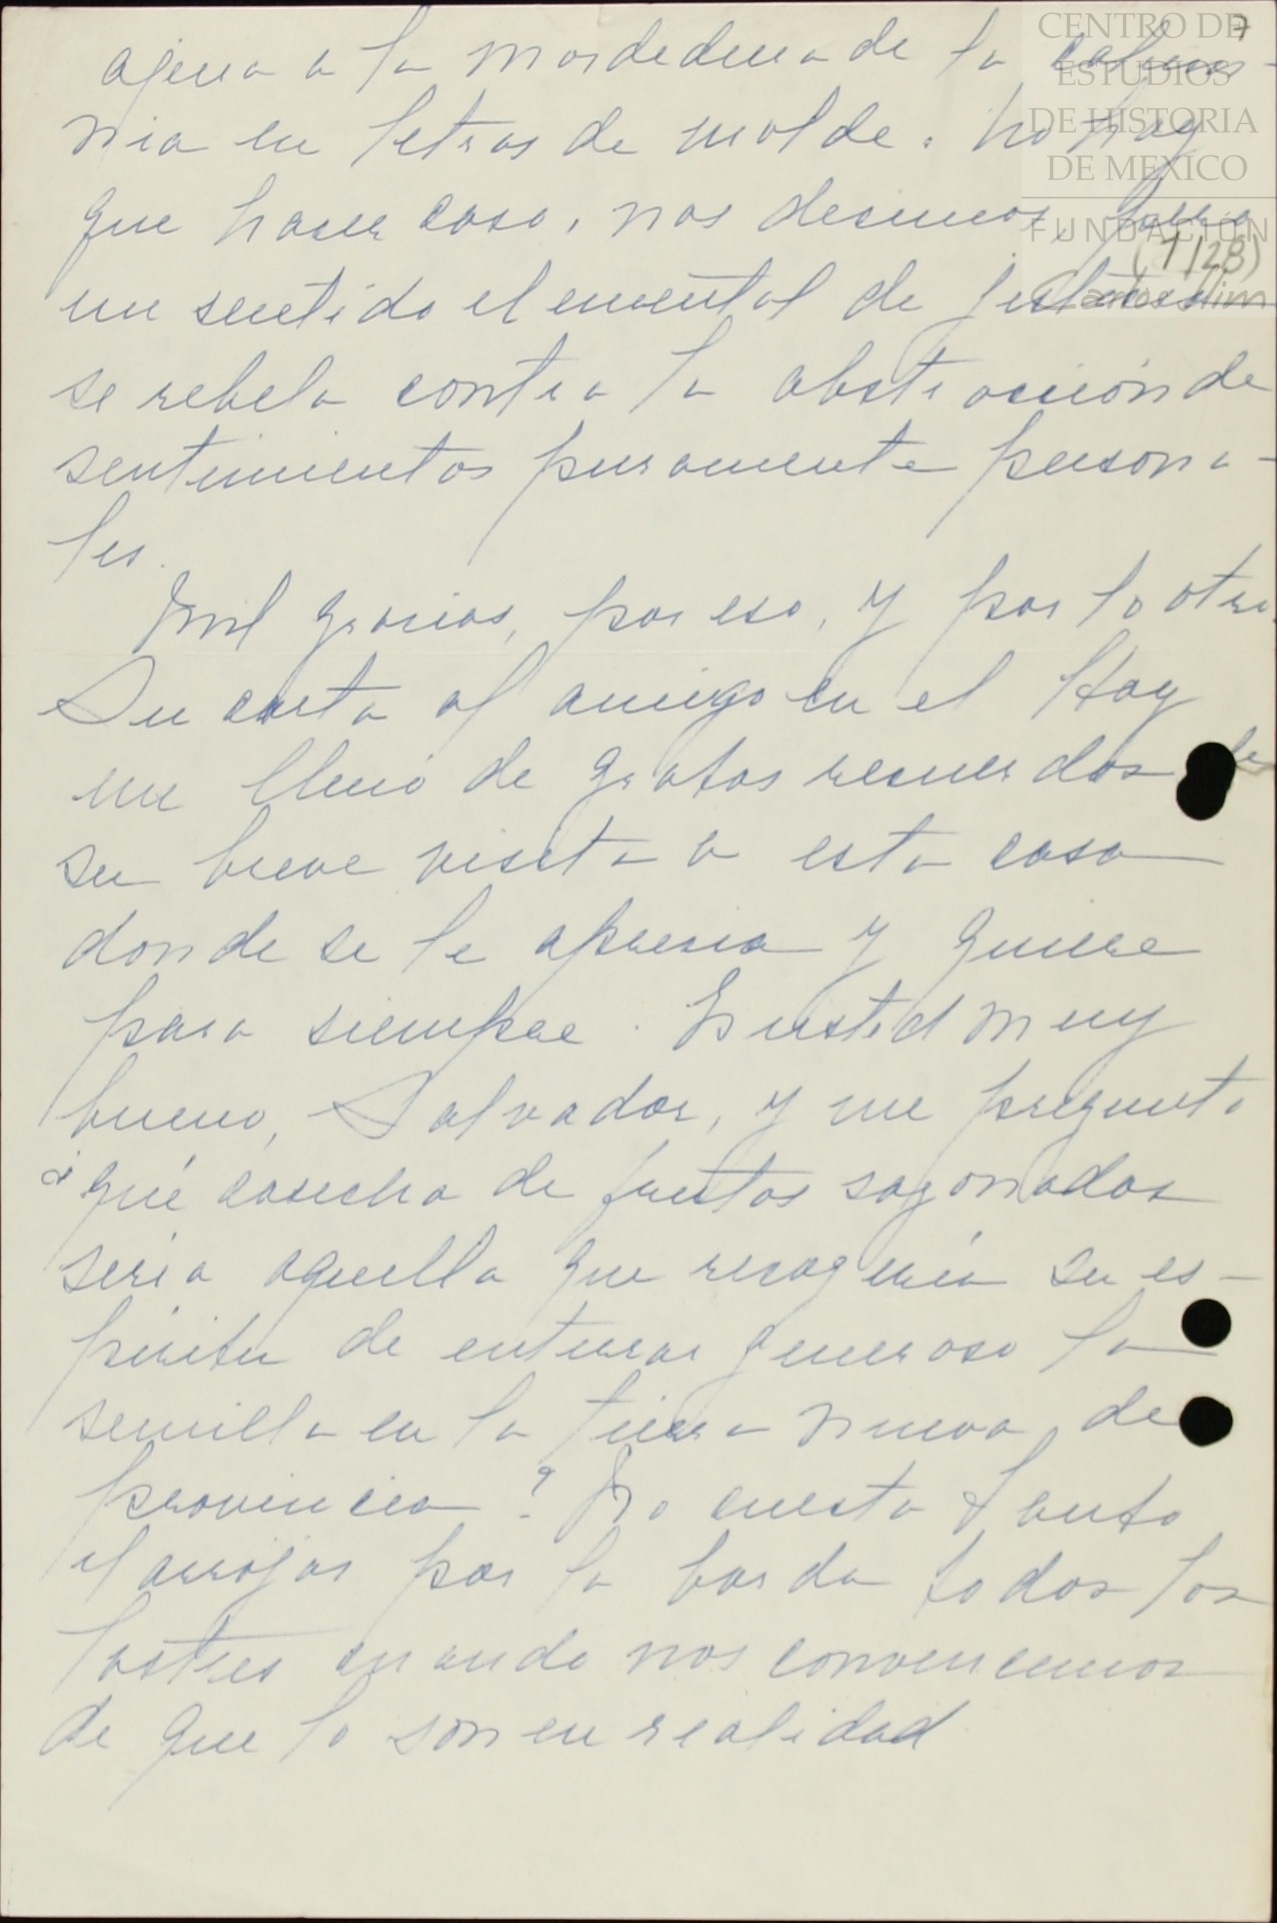 7
CENTRO DE
ESTUDIOS
DE HISTORIA
DE MEXICO
FUNDACIÓN
Carlos Slim
(7/28)
ajena a la mordedura de la calum-
nia en letras de molde. No hay
que hacer caso, nos decimos, pero
un sentido elemental de justicia
se rebela contra la abstracción de
sentimientos puramente persona-
les.
Mil gracias, por eso, y por lo otro.
Su carta al amigo en el Hoy
me llenó de gratos recuerdos de
su breve visita a esta casa
donde se le aprecia y quiere
para siempre. Es usted muy
bueno, Salvador, y me pregunto
¿qué cosecha de frutos sazonados
sería aquella que recogería su es-
píritu de enterrar generoso la
semilla en la tierra nueva, de
provincia? No cuesta tanto
el arrojar por la borda todos los
lastres cuando nos convencemos
de que lo son en realidad